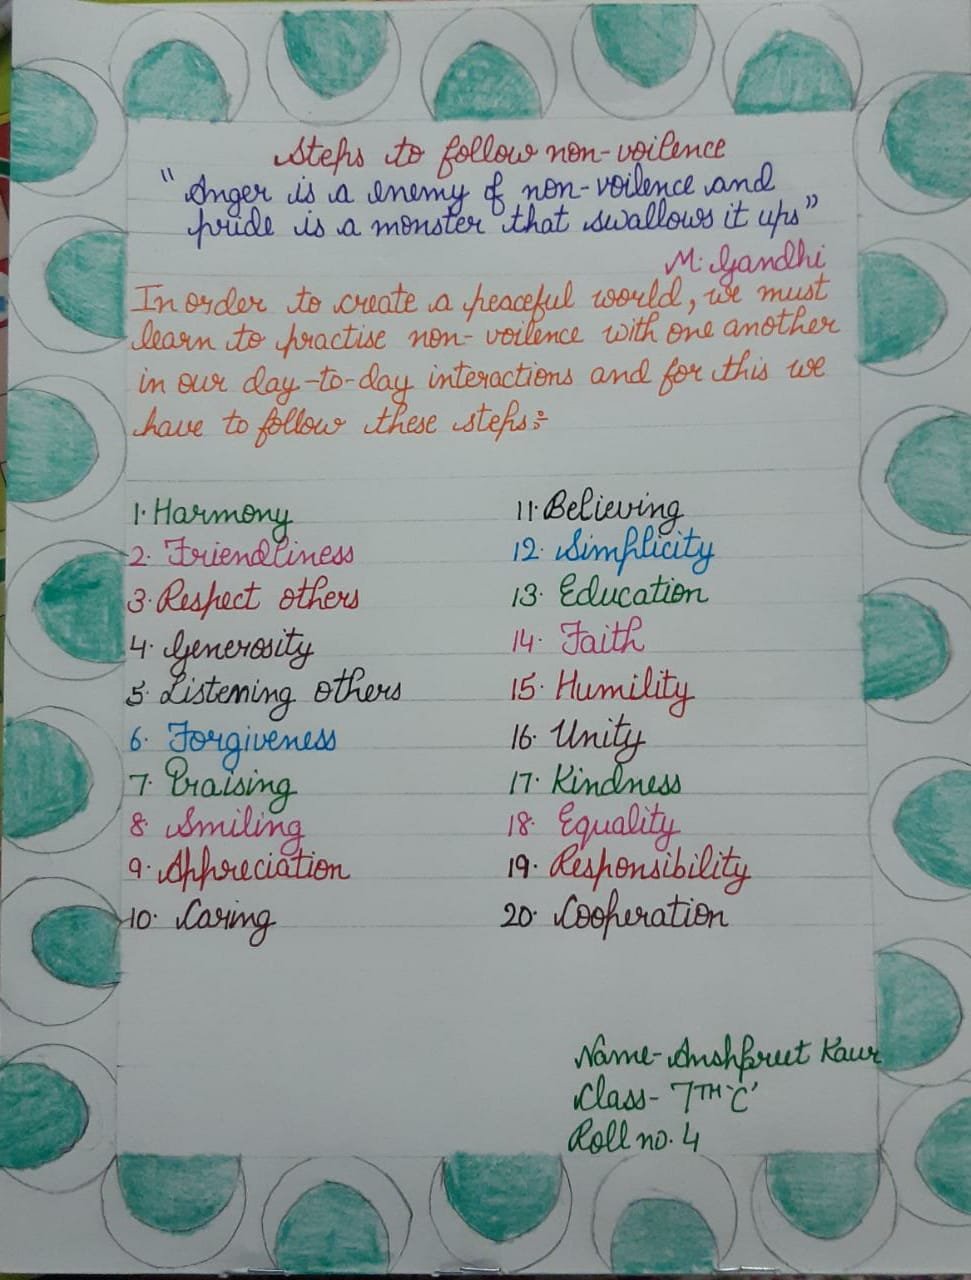 Steps to follow non-voilence
"Anger is a enemy of non-voilence and
pride is a monster that swallows it up"
M. Gandhi
In order to create a peaceful world, we must
learn to practise non-voilence with one another
in our day-to-day interactions and for this we
have to follow these steps:-
1. Harmony
2. Friendliness
3. Respect others
4. Generosity
5. Listening others
6. Forgiveness
7. Praising
8. Smiling
9. Appreciation
10. Caring
11. Believing
12. Simplicity
13. Education
14. Faith
15. Humility
16. Unity
17. Kindness
18. Equality
19. Responsibility
20. Cooperation
Name- Anshpreet Kaur
Class- 7TH 'C'
Roll no. 4